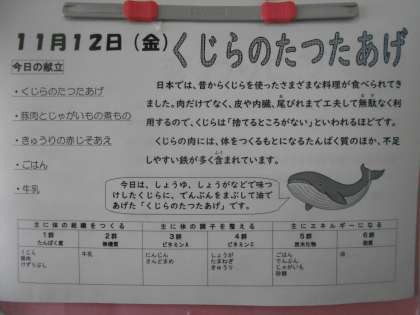 11月12日(金)くじらのたつたあげ
今日の献立
・くじらのたつたあげ
・豚肉とじゃがいもの煮もの
・きゅうりの赤じそあえ
・ごはん
・牛乳
日本では、昔からくじらを使ったさまざまな料理が食べられて
きました。肉だけでなく、皮や内臓、尾びれまで工夫して無駄なく利
用するので、くじらは「捨てるところがない」といわれるほどです。
くじらの肉には、体をつくるもとになるたんぱく質のほか、不足
しやすい鉄が多く含まれています。
今日は、しょうゆ、しょうがなどで味つ
けしたくじらに、でんぷんをまぶして油で
あげた「くじらのたつたあげ」です。
主に体の組織をつくる 主に体の調子を整える 主にエネルギーになる
1群 2群 3群 4群 5群 6群
たんぱく質 無機質 ビタミンA ビタミンC 炭水化物 脂質
くじら 牛乳 にんじん しょうが ごはん 油
豚肉 さんどまめ たまねぎ でんぷん
けずりぶし きゅうり じゃがいも
砂糖